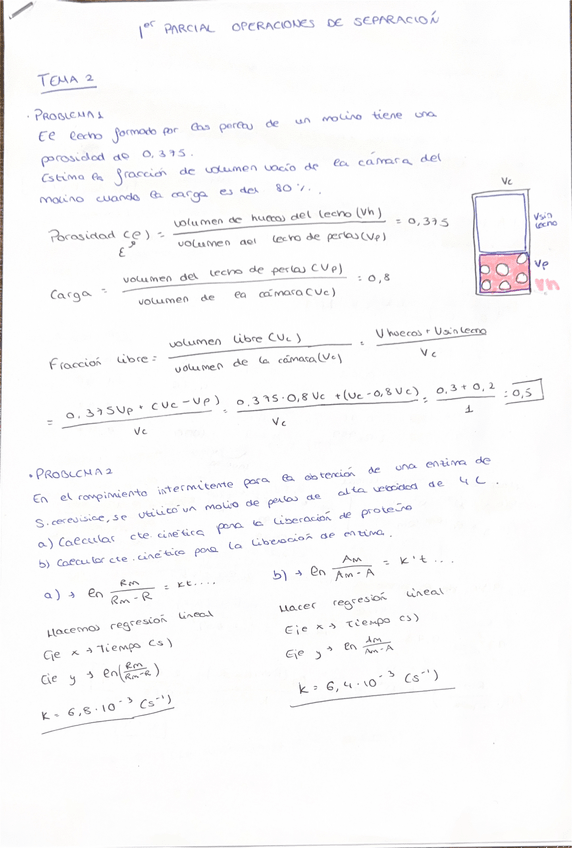 1er PARCIAL OPERACIONES DE SEPARACIÓN
TEMA 2
· PROBLEMA 1
El lecho formado por las perlas de un molino tiene una
porosidad de 0,375.
Estima la fracción de volumen vacío de la cámara del
molino cuando la carga es del 80%.
Vc
Vsin lecho
Vp
Vh
Porosidad (e) = volumen de huecos del lecho (Vh) / volumen del lecho de perlas (Vp) = 0,375
ε
Carga = volumen del lecho de perlas (Vp) / volumen de la cámara (Vc) = 0,8
Fracción libre = volumen libre (VL) / volumen de la cámara (Vc) = Vhuecos + Vsin lecho / Vc
= 0,375Vp + (Vc - Vp) / Vc = 0,375·0,8Vc + (Vc - 0,8Vc) / Vc = 0,3 + 0,2 / 1 = 0,5
· PROBLEMA 2
En el rompimiento intermitente para la obtención de una enzima de
S. cerevisiae, se utilizó un molio de perlas de alta velocidad de 4 L.
a) Calcular cte cinética para la liberación de proteína
b) Calcular cte. cinética para la liberación de enzima.
a) → ln Rm / Rm - R = kt....
Hacemos regresión lineal
Eje x → Tiempo (s)
Eje y → ln(Rm / Rm-R)
k = 6,8·10⁻³ (s⁻¹)
b) → ln Am / Am - A = k't ...
Hacer regresión lineal
Eje x → Tiempo (s)
Eje y → ln Am / Am-A
k = 6,4·10⁻³ (s⁻¹)